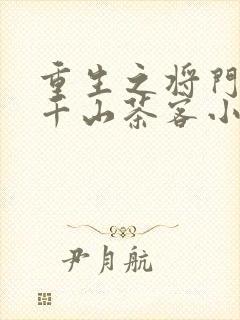 重生之将门
千山茶客小
尹月航